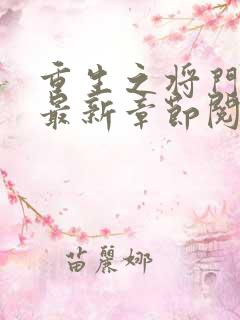 重生之将门
最新章節阅
苗麗娜